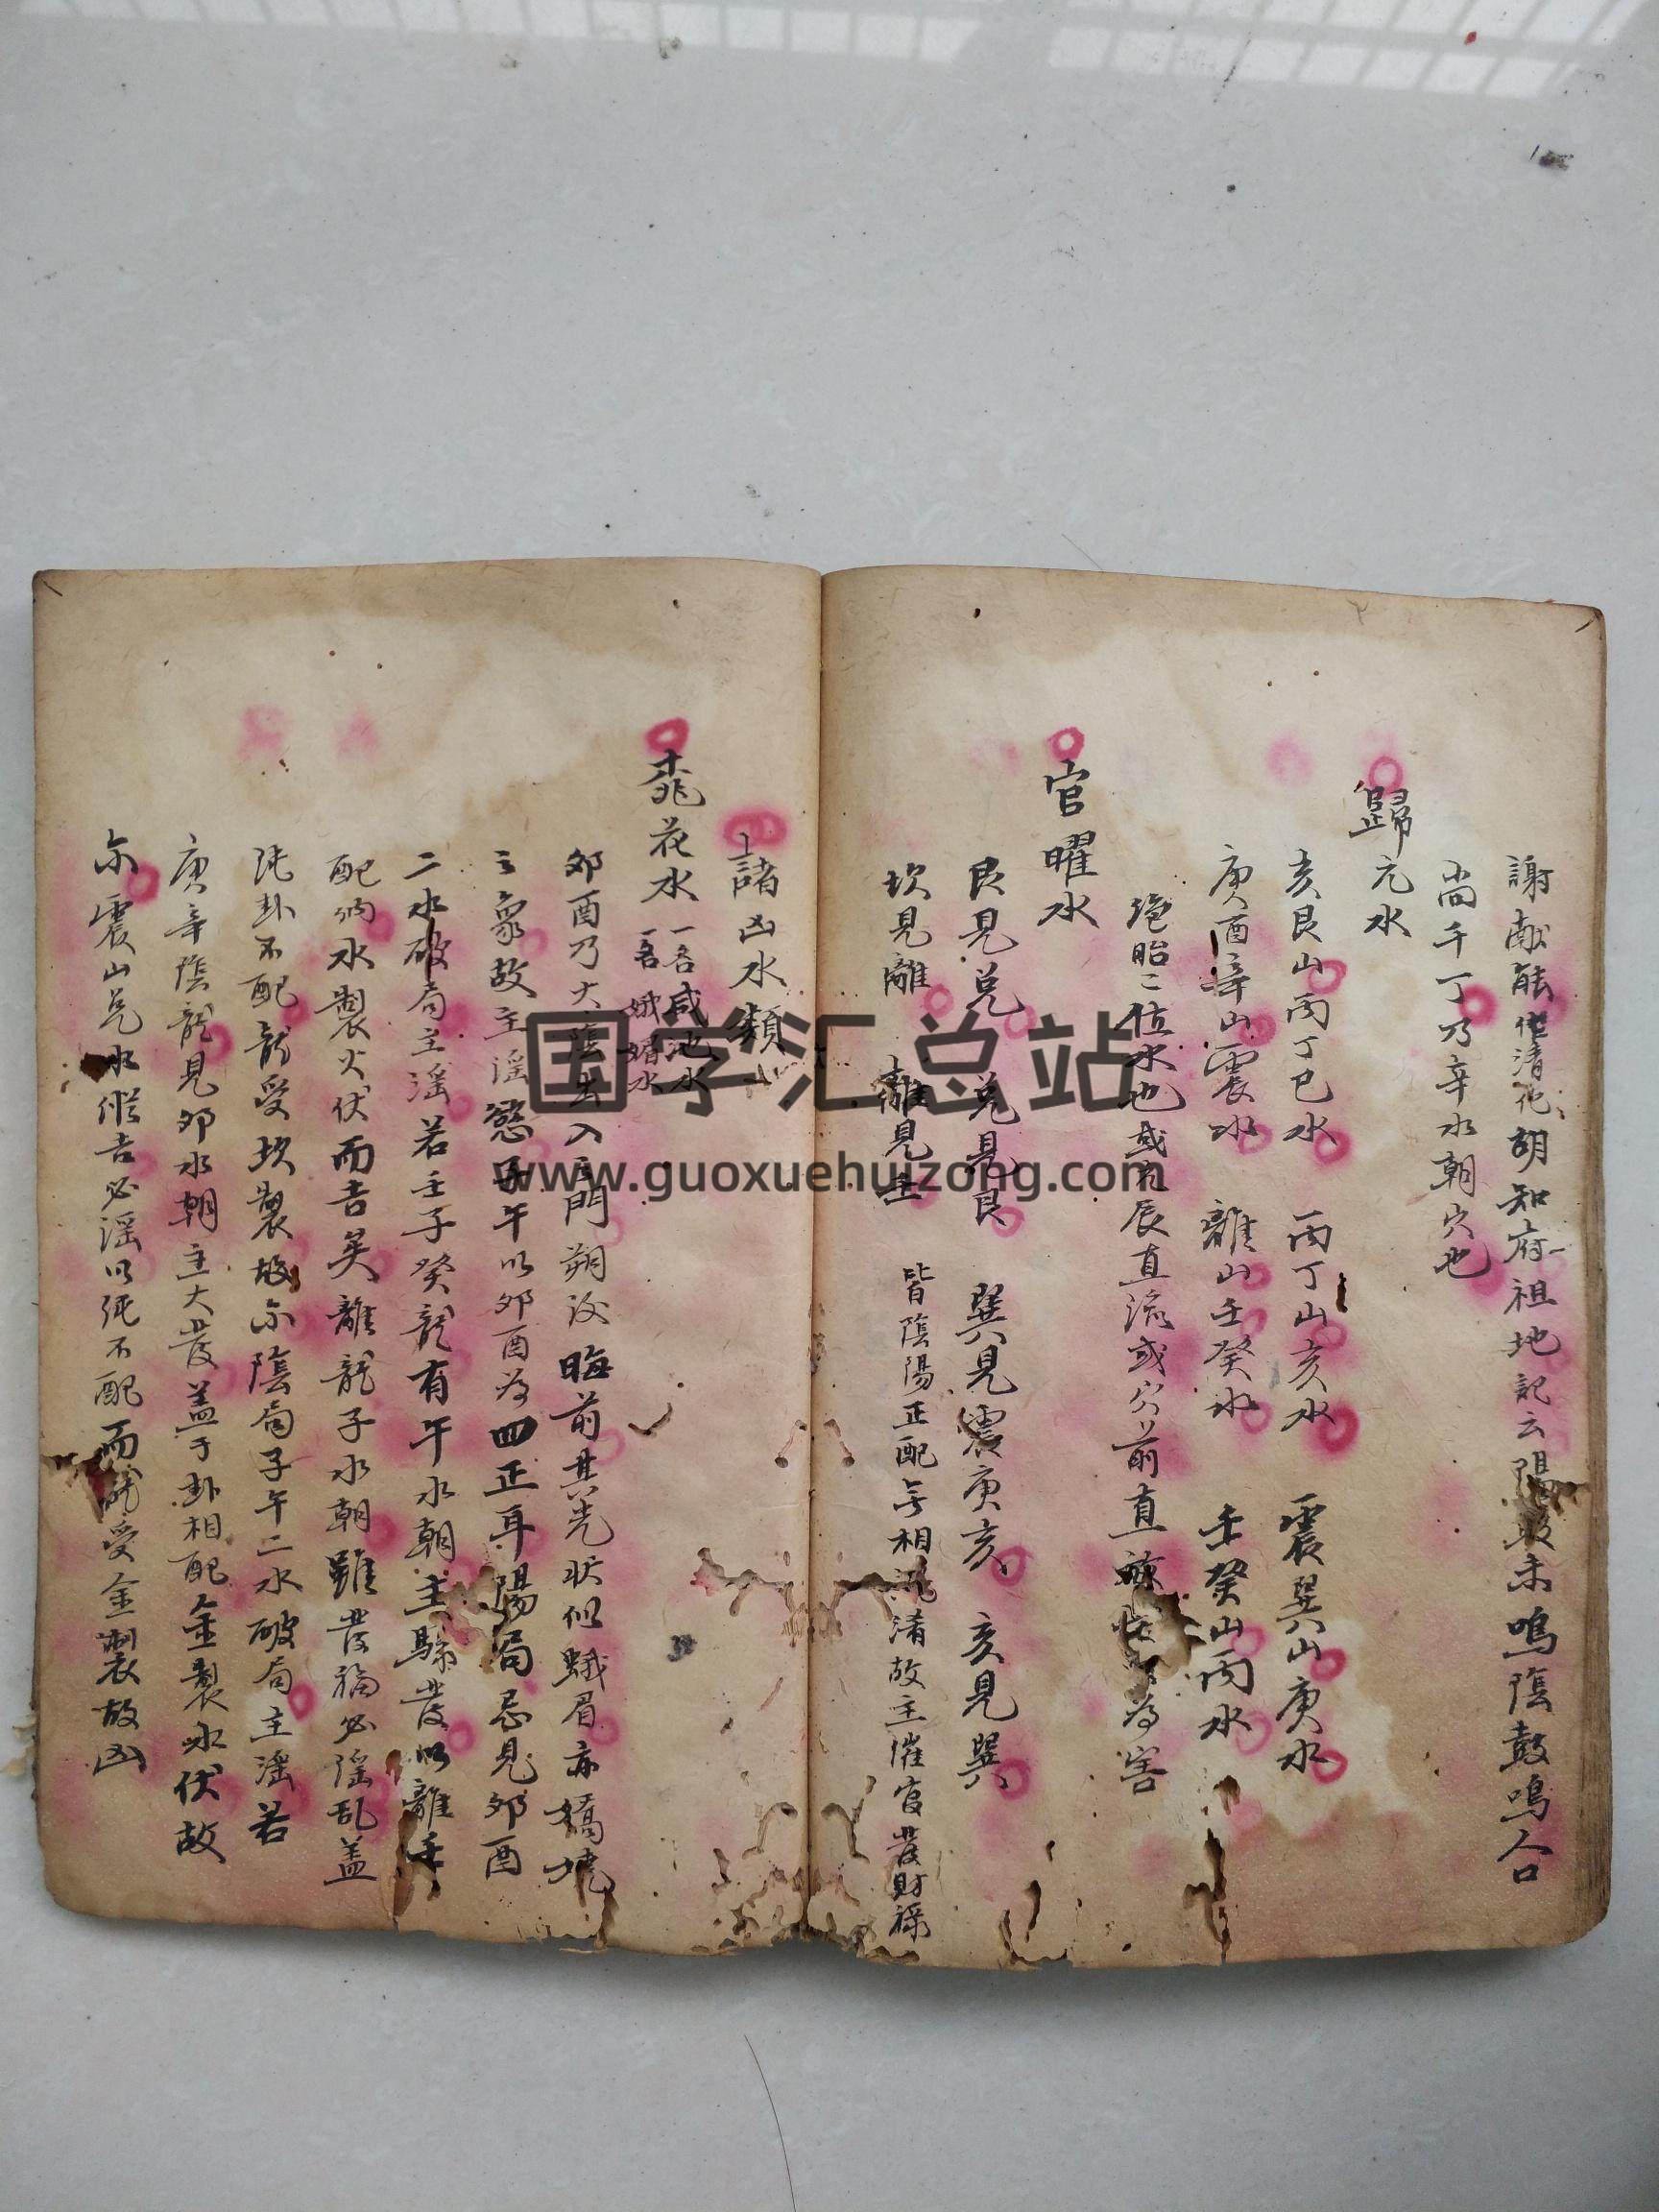 謝献能作清花胡知府祖地記云陽水未鳴陰鼓鳴人口
尚千丁乃辛水朝穴也
歸元水
亥艮山丙丁巳水 丙丁山亥水 震巽山庚水
庚酉辛山震水 離山壬癸水 壬癸山丙水
胎二位水也或元辰直流或穴前直 為害
官曜水
艮見兑 兑見艮 巽見震庚亥 亥見巽
坎見離 離見壬 皆陰陽正配無相混淆故主催官發財祿
諸凶水類
桃花水 一名咸池水 一名娥媚水
卯酉乃大陰出入之門朔後晦前其光狀似蛾眉亦嬌
之象故主滛慾子午以卯酉為四正耳陽局忌見卯酉
二水破局主滛若壬子癸龍有午水朝主驟發以離壬
配納水製火伏而吉矣離龍子水朝雖發福必滛乱盖
純卦不配龍受坎製故尔陰局子午二水破局主滛若
庚辛陰龍見卯水朝主大發盖于卦相配金製水伏故
尔震山兑水縱吉必滛以純不配而龍受金製故凶
国学汇总站
www.guoxuehuizong.com